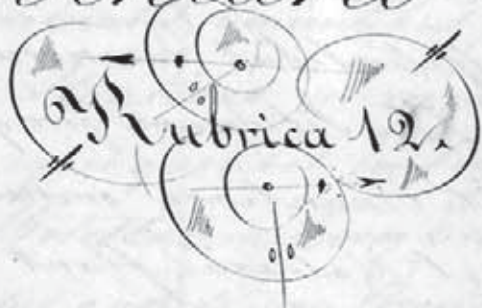 Rubrica 12.